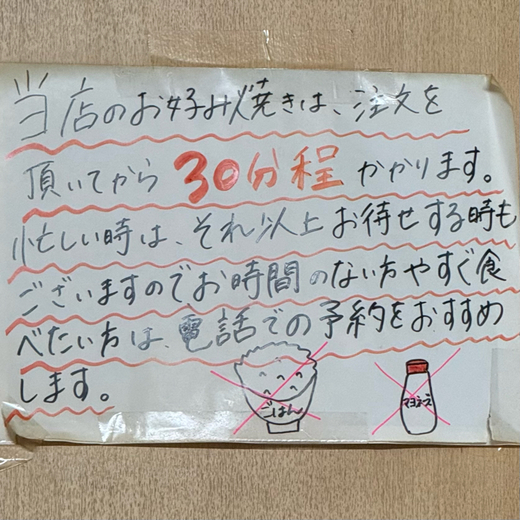 当店のお好み焼きは、注文を
頂いてから30分程かかります。
忙しい時は、それ以上お待せする時も
ございますのでお時間のない方やすぐ食
べたい方は、電話での予約をおすすめ
します。
ごはん
マヨネーズ